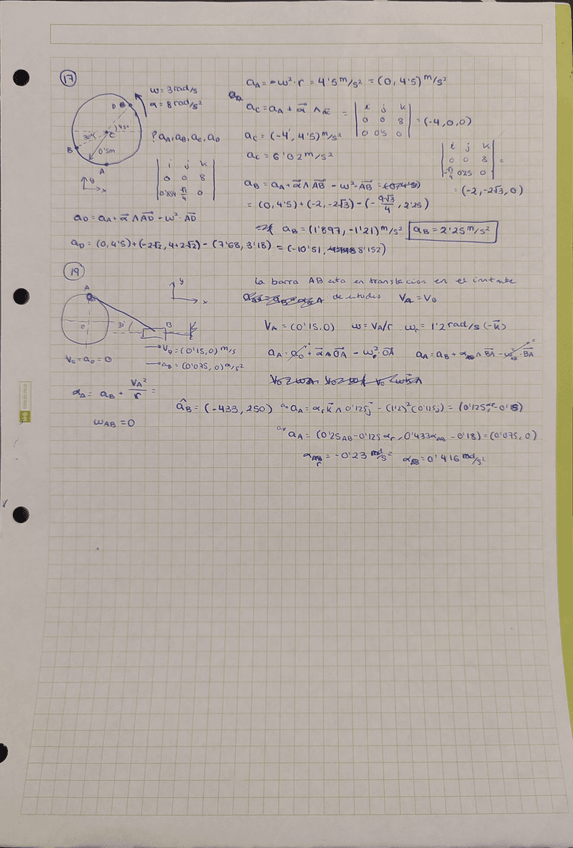 17
ω = 3 rad/s
α = 8 rad/s²
D
C
45º
30º
B
0'5m
A
y
x
? a_A, a_B, a_C, a_D
a_A = -ω²·r = 4'5 m/s² = (0, 4'5) m/s²
a_C = a_A + α ∧ AC =
i j k
0 0 8
0 0'5 0
= (-4,0,0)
a_C = (-4, 4'5) m/s²
a_C = 6'02 m/s²
i j k
0 0 8
0
i j k
0 0 8
0'25 0
=
= (-2, -2√3, 0)
a_B = a_A + α ∧ AB - ω²·AB
= (0, 4'5) + (-2, -2√3) - (-9√3/4, 2'25)
a_B = (1'897, -1'21) m/s²
a_B = 2'25 m/s²
a_D = a_A + α ∧ AD - ω²·AD
a_D = (0, 4'5) + (-2√2, 4+2√2) - (7'68, 3'18) = (-10'51, 8'152)
19
A
y
x
0
B
V_B = (0'15, 0) m/s
a_B = (0'075, 0) m/s²
V_0 = a_0 = 0
La barra AB está en translación en el instante
de estudio V_A = V_B
V_A = (0'15, 0) ω = V_A/r ω_r = 1'2 rad/s (-k)
a_A = a_0 + α ∧ OA - ω_r²·OA a_A = a_B + α_AB ∧ BA - ω²_AB·BA
a_A = a_B + V_A²/r =
ω_AB = 0
AB = (-433, 250)
a_A = α_r k ∧ 0'125 j - (1'2)²(0'125 j) = (0'125α_r, -0'18)
a_A = (0'25α_AB - 0'125α_r, 0'433α_AB - 0'18) = (0'075, 0)
α_r = -0'23 rad/s² α_AB = 0'416 rad/s²